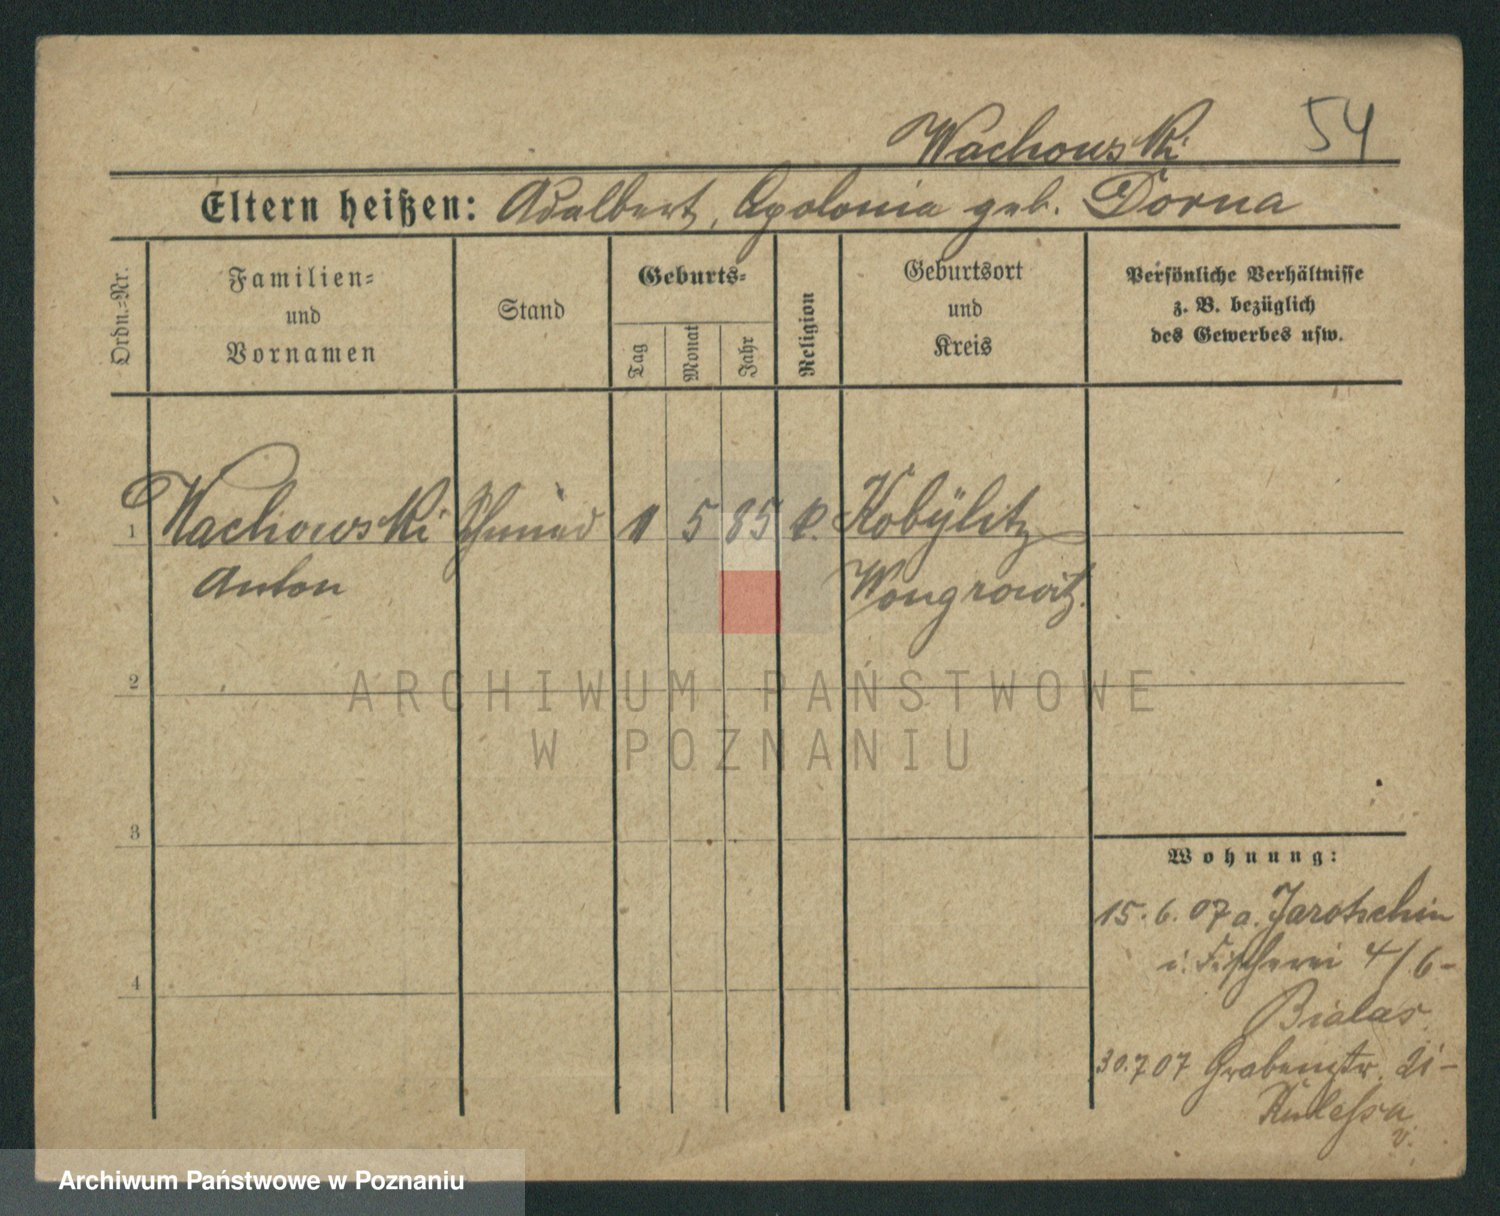 Wachowski 54
Eltern heißen: Adalbert, Apolonia geb. Dorna
Ordn.-Nr.
Familien-
und
Vornamen
Stand
Geburts-
Tag
Monat
Jahr
Religion
Geburtsort
und
Kreis
Persönliche Verhältnisse
z. B. bezüglich
des Gewerbes usw.
1 Wachowski Schmied 11 5 85 k. Kobylitz
Anton Wongrowitz.
2
ARCHIWUM PAŃSTWOWE
W POZNANIU
3
Wohnung:
15.6.07 a. Jarotschin
i. Fischerei 4/6-
Bialas
4
30.7.07 Grabenstr.
Kulessa
Archiwum Państwowe w Poznaniu